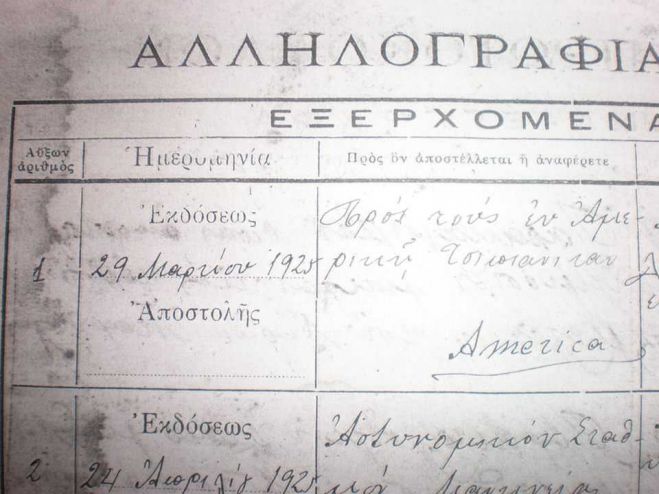 ΑΛΛΗΛΟΓΡΑΦΙΑ
ΕΞΕΡΧΟΜΕΝΑ
Αὔξων ἀριθμὸς
Ἡμερομηνία
Πρὸς ὃν ἀποστέλλεται ἢ ἀναφέρετε
1
Ἐκδόσεως
29 Μαρτίου 1925
Ἀποστολῆς
Πρός τούς ἐν Ἀμε-
ρικῇ
America
2
Ἐκδόσεως
24 Ἀπριλίου 1925
Ἀστυνομικόν Σταθ-
μόν